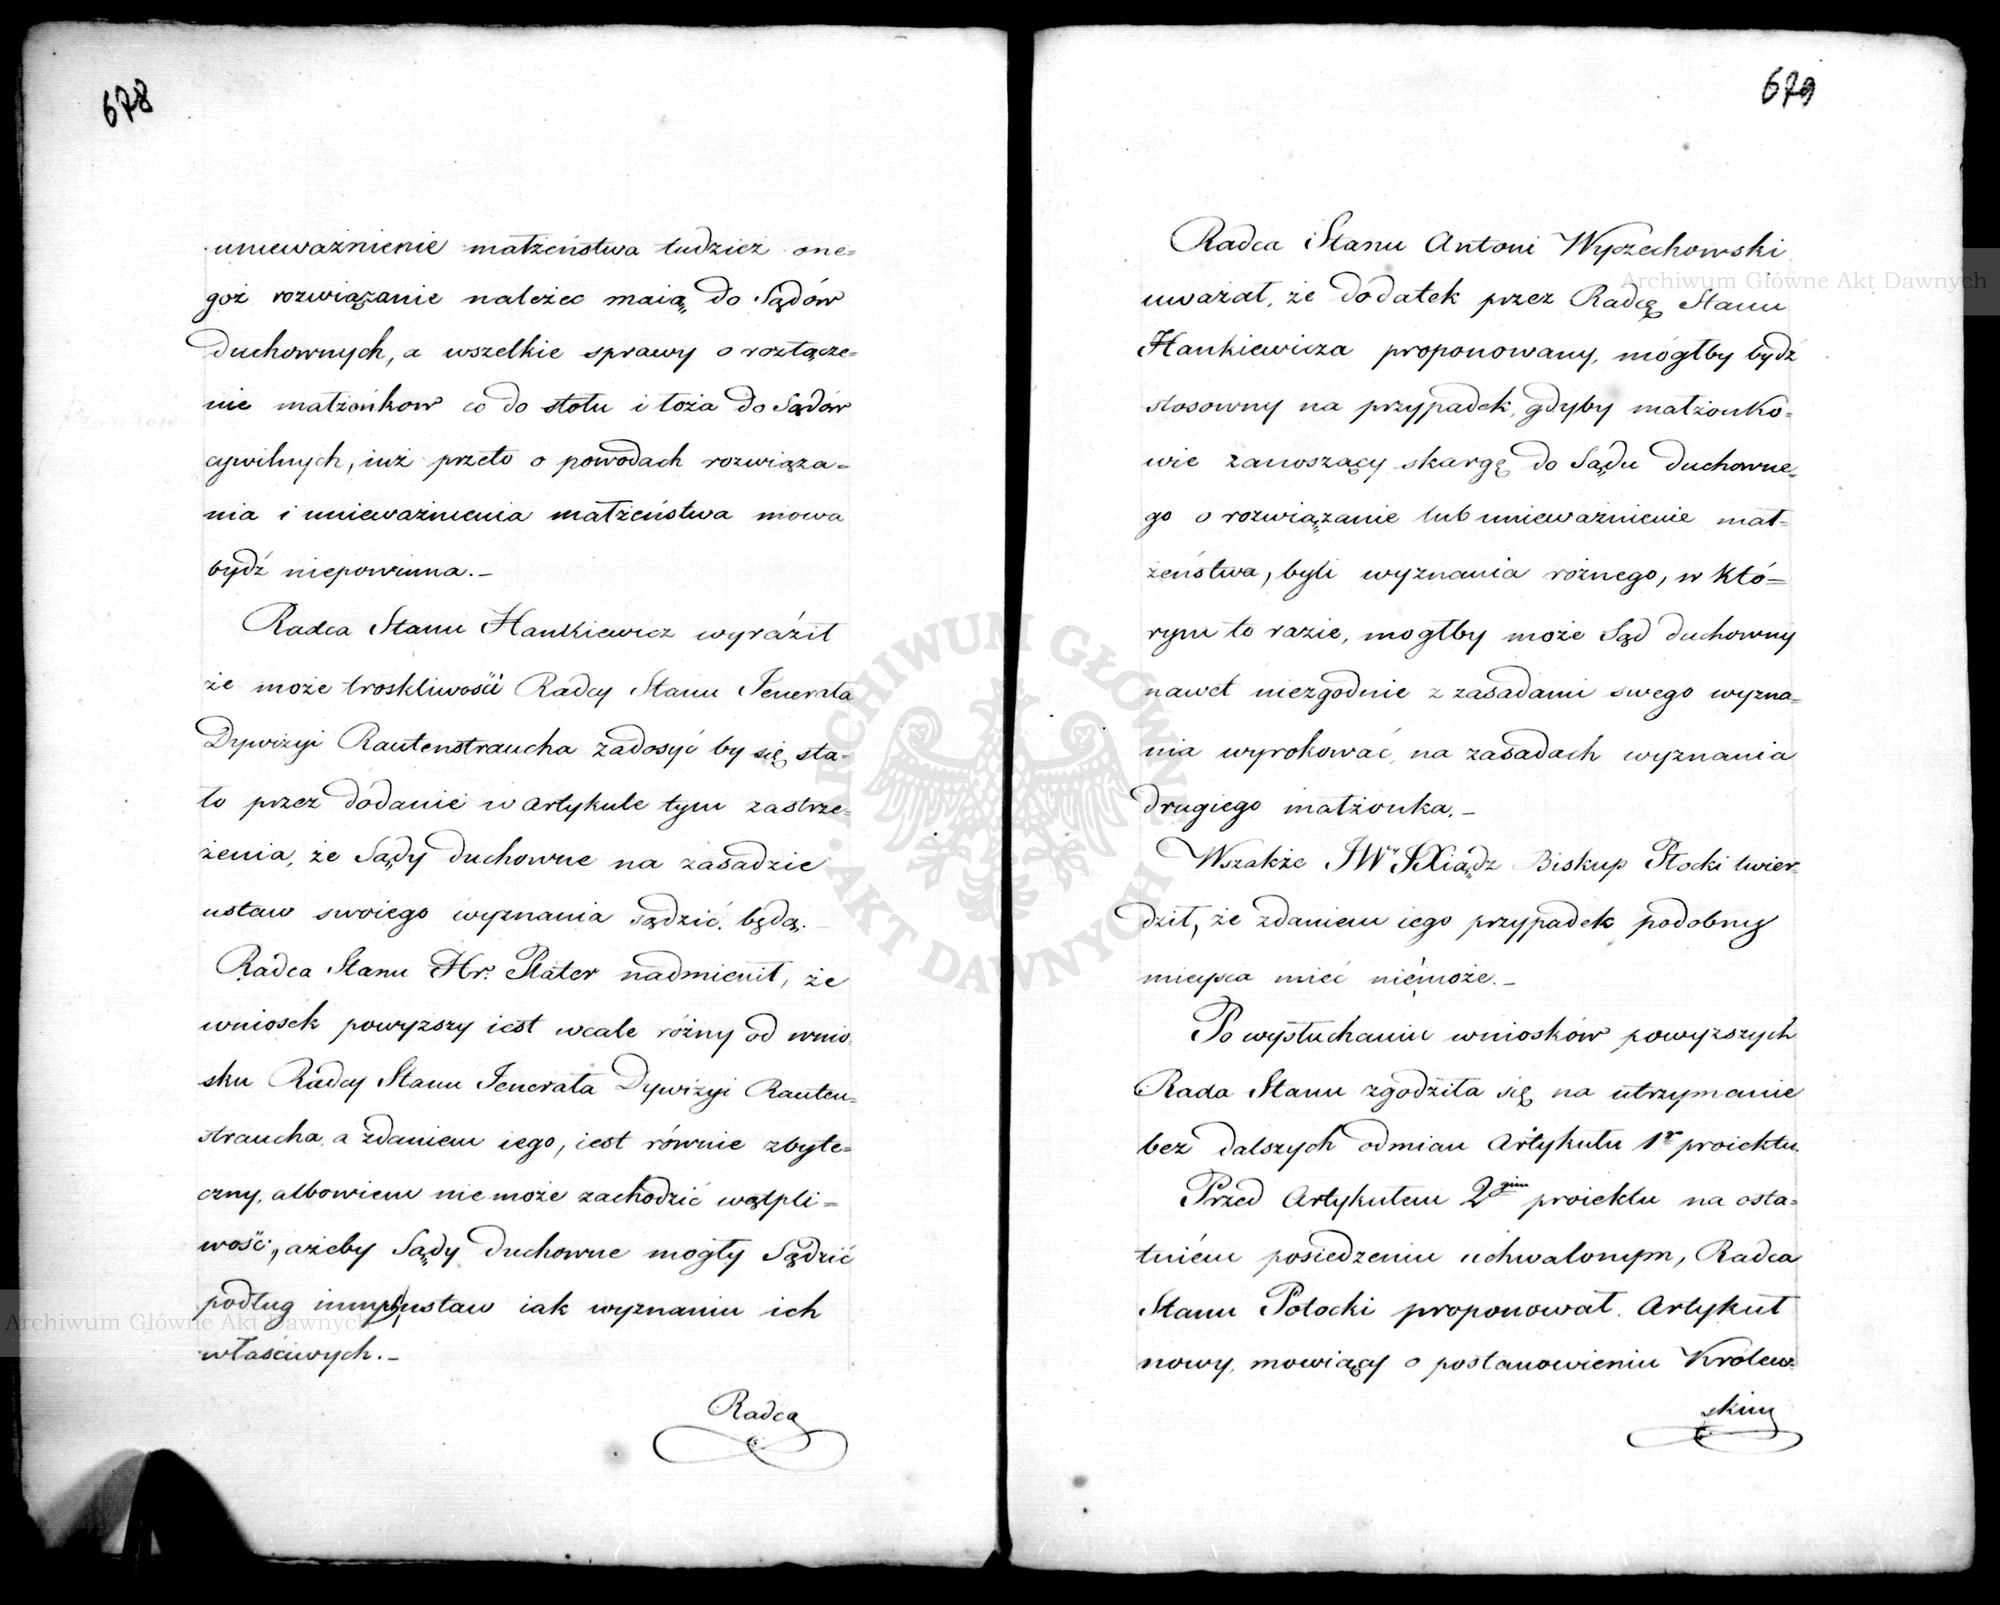 678
unieważnienie małżeństwa tudzież one=
goż rozwiązanie należec maią do Sądów
duchownych, a wszelkie sprawy o rozłącze=
nie małżonkow co do stołu i łoża do Sądów
cywilnych, iuż przeto o powodach rozwiąza=
nia i unieważnienia małżeństwa mowa
bydź niepowinna.–
Radca Stanu Hankiewicz wyraźił
że może troskliwości Radcy Stanu Jenerała
Dywizyi Rautenstraucha zadosyć by się sta=
ło przez dodanie w artykule tym zastrze=
żenia, że Sądy duchowne na zasadzie
ustaw swoiego wyznania sądzić będą.
Radca Stanu Hr. Plater nadmienił, że
wniosek powyzszy iest wcale różny od wnio=
sku Radcy Stanu Jenerała Dywizyi Rauten=
straucha, a zdaniem iego, iest równie zbyte=
czny, albowiem nie może zachodzić wątpli=
wość, ażeby Sądy duchowne mogły Sądzić
podług innych ustaw iak wyznaniu ich
właściwych.–
Radca
679
Radca Stanu Antoni Wyczechowski
uważał, że dodatek przez Radcę Stanu
Hankiewicza proponowany, mógłby bydź
stosowny na przypadek, gdyby małżonko=
wie zanoszący skargę do Sądu duchowne=
go o rozwiązanie lub unieważnienie mał=
żeństwa, byli wyznania różnego, w któ=
rym to razie, mogłby może Sąd duchowny
nawet niezgodnie z zasadami swego wyzna=
nia wyrokować, na zasadach wyznania
drugiego małżonka.–
Wszakże JW. JXiądz Biskup Płocki twier=
dził, że zdaniem iego przypadek podobny
mieysca mieć niemoże.–
Po wysłuchaniu wniosków powyzszych
Rada Stanu zgodziła się na utrzymanie
bez dalszych odmian Artykułu 1go proiektu.
Przed Artykułem 2gim proiektu na osta=
tniém posiedzeniu uchwalonym, Radca
Stanu Potocki proponował Artykuł
nowy, mowiący o postanowieniu Krolew=
skim
Archiwum Główne Akt Dawnych
Archiwum Główne Akt Dawnych
ARCHIWUM GŁÓWNE · AKT DAWNYCH ·